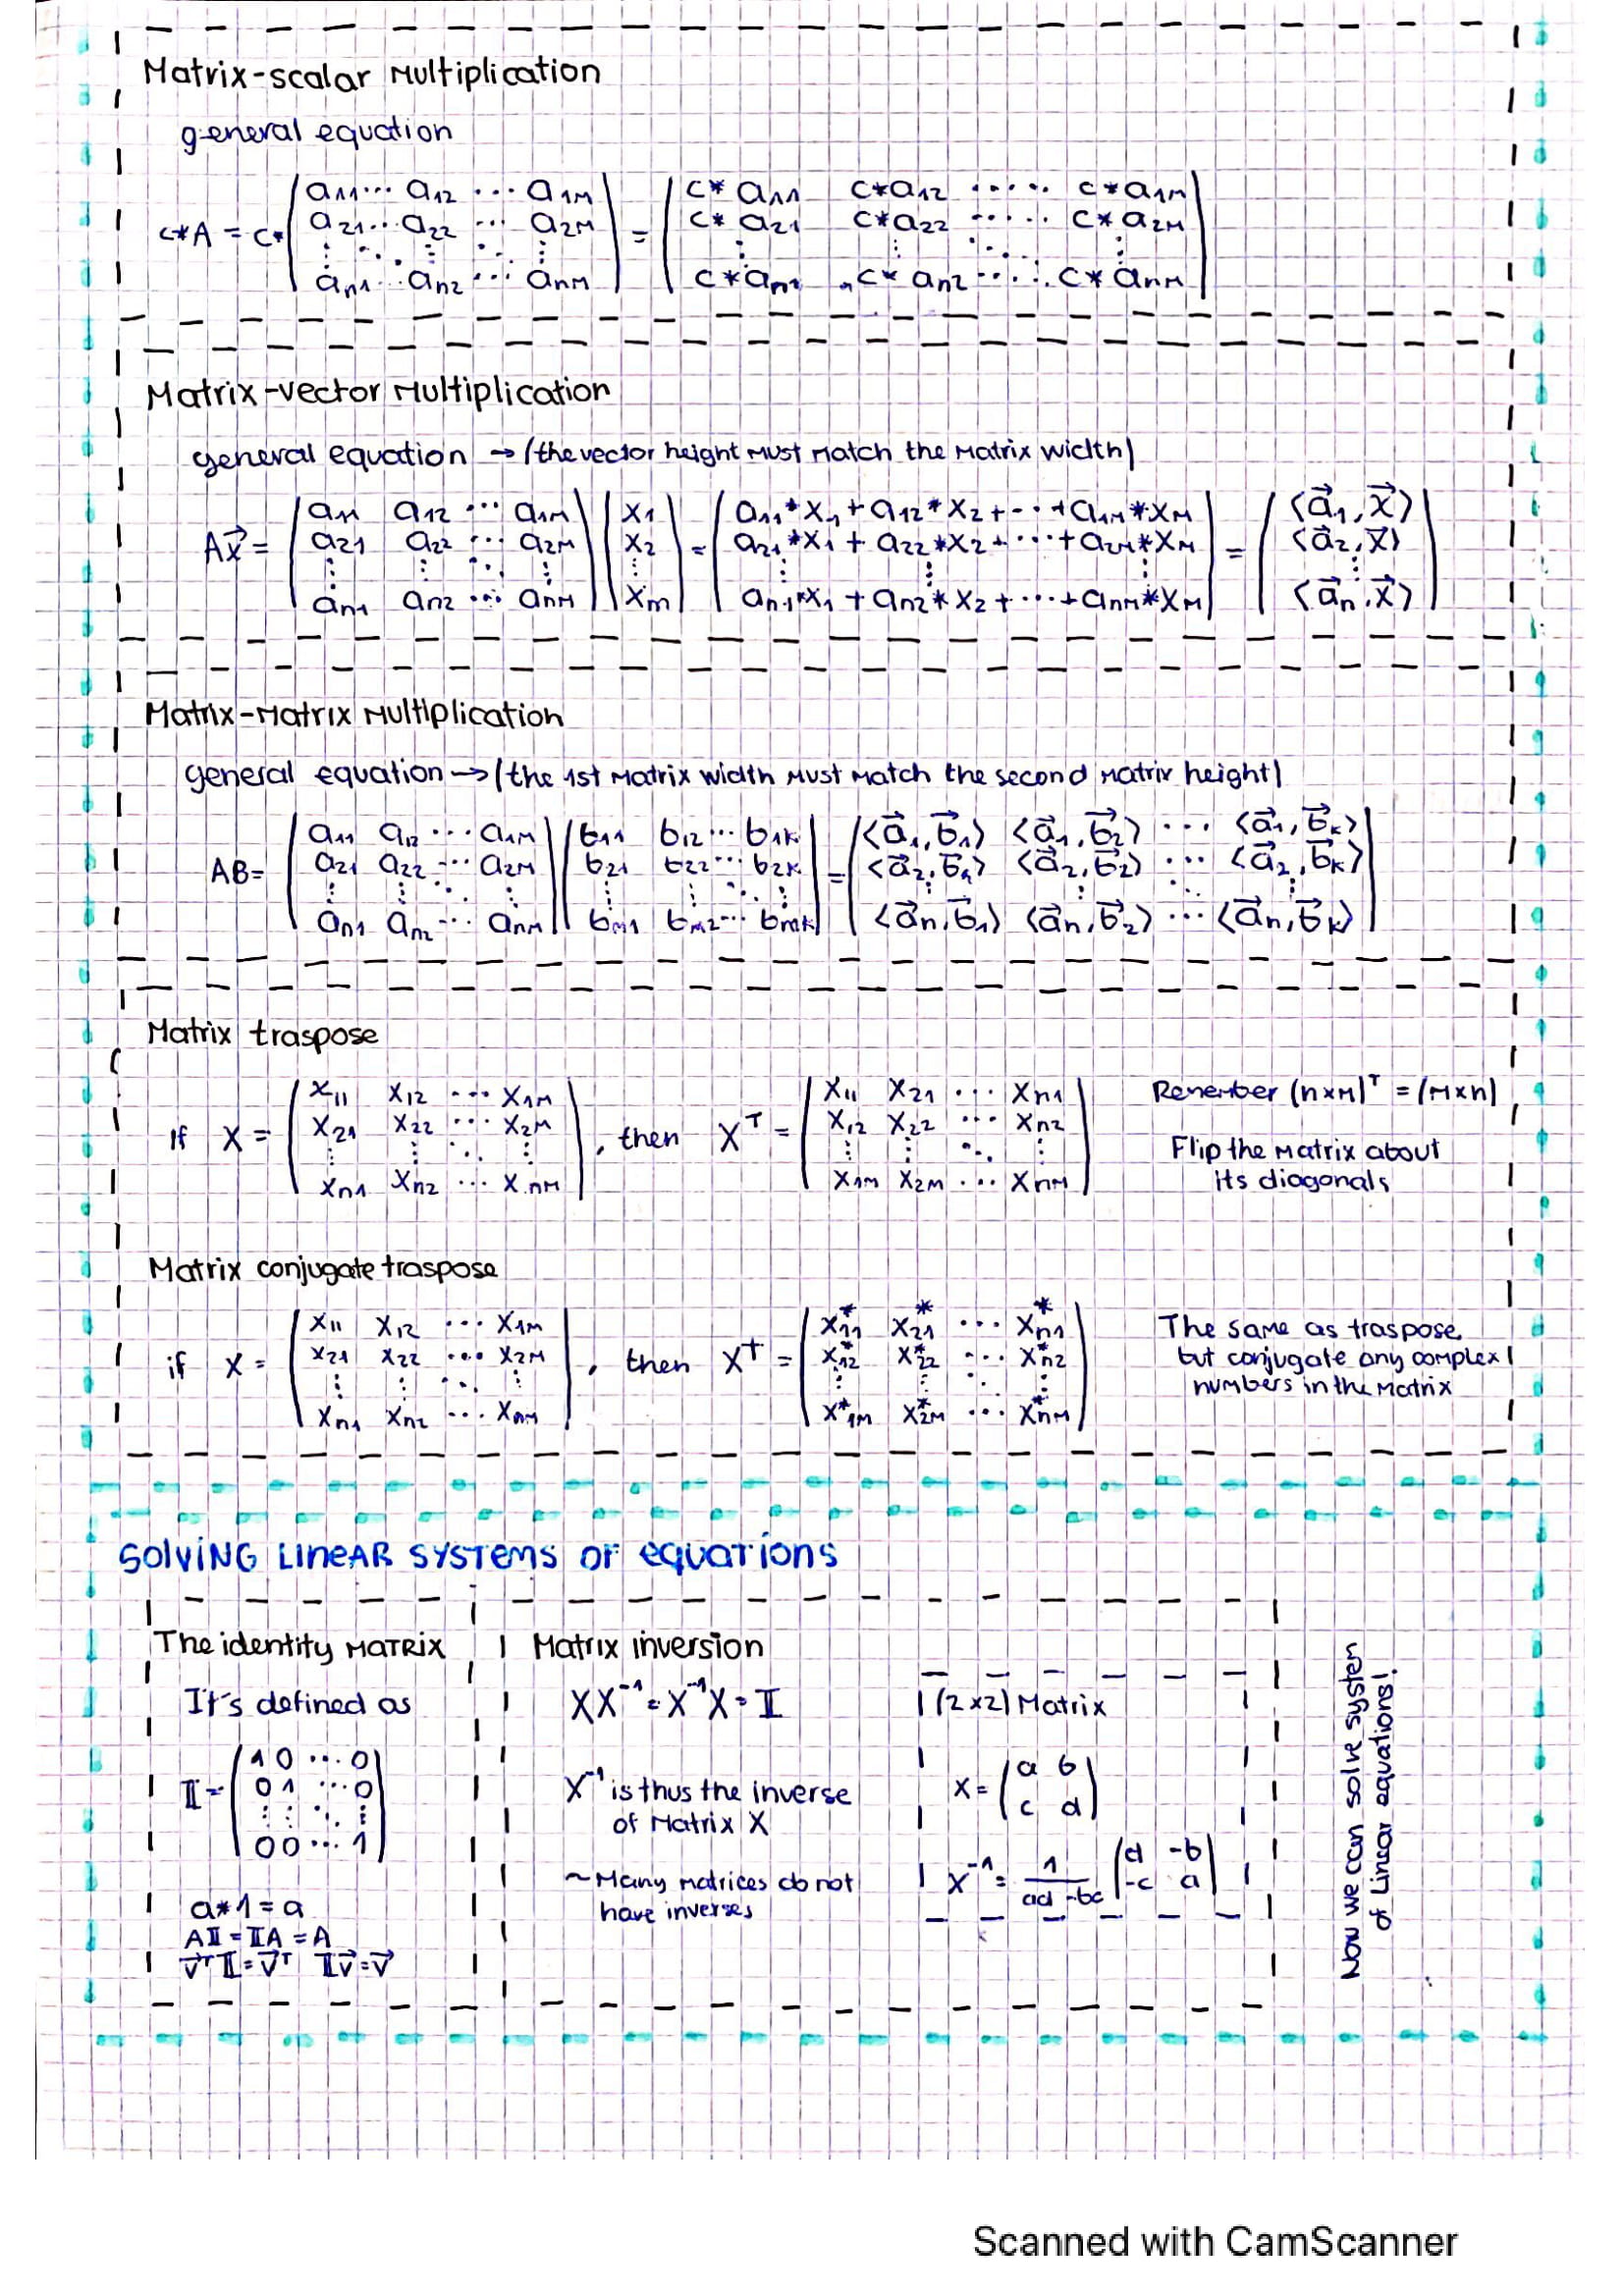 Matrix-scalar multiplication
general equation
c*A = c* ( a11 ... a12 ... a1m ) = ( c*a11 c*a12 ..... c*a1m )
( a21 ... a22 ... a2m ) ( c*a21 c*a22 ..... c*a2m )
( ⋮ ⋱ ⋮ ⋱ ⋮ ) ( ⋮ ⋮ ⋱ ⋮ )
( an1 ... an2 ... anm ) ( c*an1 c*an2 ..... c*anm )
Matrix-vector multiplication
general equation → (the vector height must match the matrix width)
Ax⃗ = ( a11 a12 ... a1m ) ( x1 ) = ( a11*x1 + a12*x2 + ... + a1m*xm ) = ( ⟨a⃗1, x⃗⟩ )
( a21 a22 ... a2m ) ( x2 ) ( a21*x1 + a22*x2 + ... + a2m*xm ) ( ⟨a⃗2, x⃗⟩ )
( ⋮ ⋮ ⋱ ⋮ ) ( ⋮ ) ( ⋮ ⋮ ⋮ ) ( ⋮ )
( an1 an2 ... anm ) ( xm ) ( an1*x1 + an2*x2 + ... + anm*xm ) ( ⟨a⃗n, x⃗⟩ )
Matrix-matrix multiplication
general equation → (the 1st matrix width must match the second matrix height)
AB = ( a11 a12 ... a1m ) ( b11 b12 ... b1k ) = ( ⟨a⃗1, b⃗1⟩ ⟨a⃗1, b⃗2⟩ ... ⟨a⃗1, b⃗k⟩ )
( a21 a22 ... a2m ) ( b21 b22 ... b2k ) ( ⟨a⃗2, b⃗1⟩ ⟨a⃗2, b⃗2⟩ ... ⟨a⃗2, b⃗k⟩ )
( ⋮ ⋮ ⋱ ⋮ ) ( ⋮ ⋮ ⋱ ⋮ ) ( ⋮ ⋮ ⋱ ⋮ )
( an1 an2 ... anm ) ( bm1 bm2 ... bmk ) ( ⟨a⃗n, b⃗1⟩ ⟨a⃗n, b⃗2⟩ ... ⟨a⃗n, b⃗k⟩ )
Matrix traspose
If X = ( x11 x12 ... x1m ) , then X^T = ( x11 x21 ... xn1 )
( x21 x22 ... x2m ) ( x12 x22 ... xn2 )
( ⋮ ⋮ ⋱ ⋮ ) ( ⋮ ⋮ ⋱ ⋮ )
( xn1 xn2 ... xnm ) ( x1m x2m ... xnm )
Remember (n×m)^T = (m×n)
Flip the matrix about
its diagonals
Matrix conjugate traspose
if X = ( x11 x12 ... x1m ) , then X^† = ( x*11 x*21 ... x*n1 )
( x21 x22 ... x2m ) ( x*12 x*22 ... x*n2 )
( ⋮ ⋮ ⋱ ⋮ ) ( ⋮ ⋮ ⋱ ⋮ )
( xn1 xn2 ... xnm ) ( x*1m x*2m ... x*nm )
The same as traspose
but conjugate any complex
numbers in the matrix
SOLVING LINEAR SYSTEMS OF EQUATIONS
The identity MATRIX
It's defined as
𝕀 = ( 1 0 ... 0 )
( 0 1 ... 0 )
( ⋮ ⋮ ⋱ ⋮ )
( 0 0 ... 1 )
a*1 = a
A𝕀 = 𝕀A = A
v⃗^T 𝕀 = v⃗^T 𝕀v⃗ = v⃗
Matrix inversion
XX^-1 = X^-1X = 𝕀
X^-1 is thus the inverse
of matrix X
~Many matrices do not
have inverses
(2×2) Matrix
X = ( a b )
( c d )
X^-1 = 1/(ad-bc) ( d -b )
( -c a )
Now we can solve system
of Linear equations!
Scanned with CamScanner